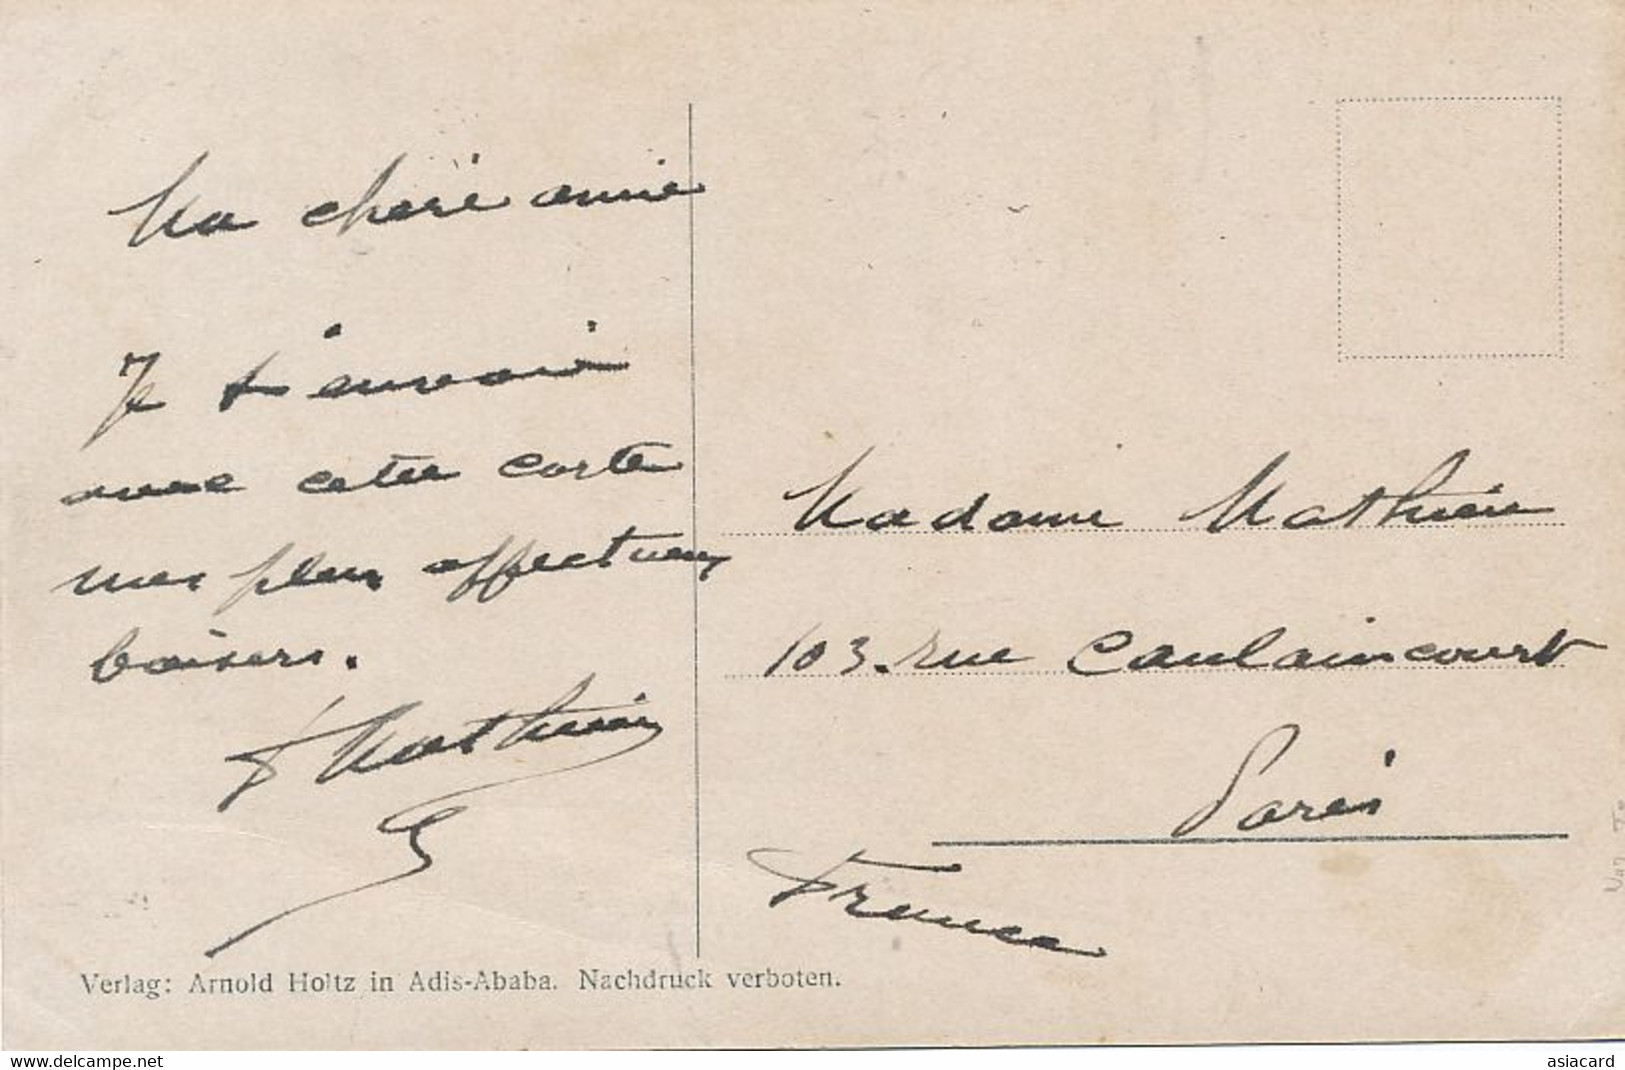 Ma chère amie
Je t'envoie
avec cette carte
mes plus affectueux
baisers.
F Mathieu
Madame Mathieu
103. rue Caulaincourt
Paris
France
Verlag: Arnold Holtz in Adis-Ababa. Nachdruck verboten.
www.delcampe.net
asiacard